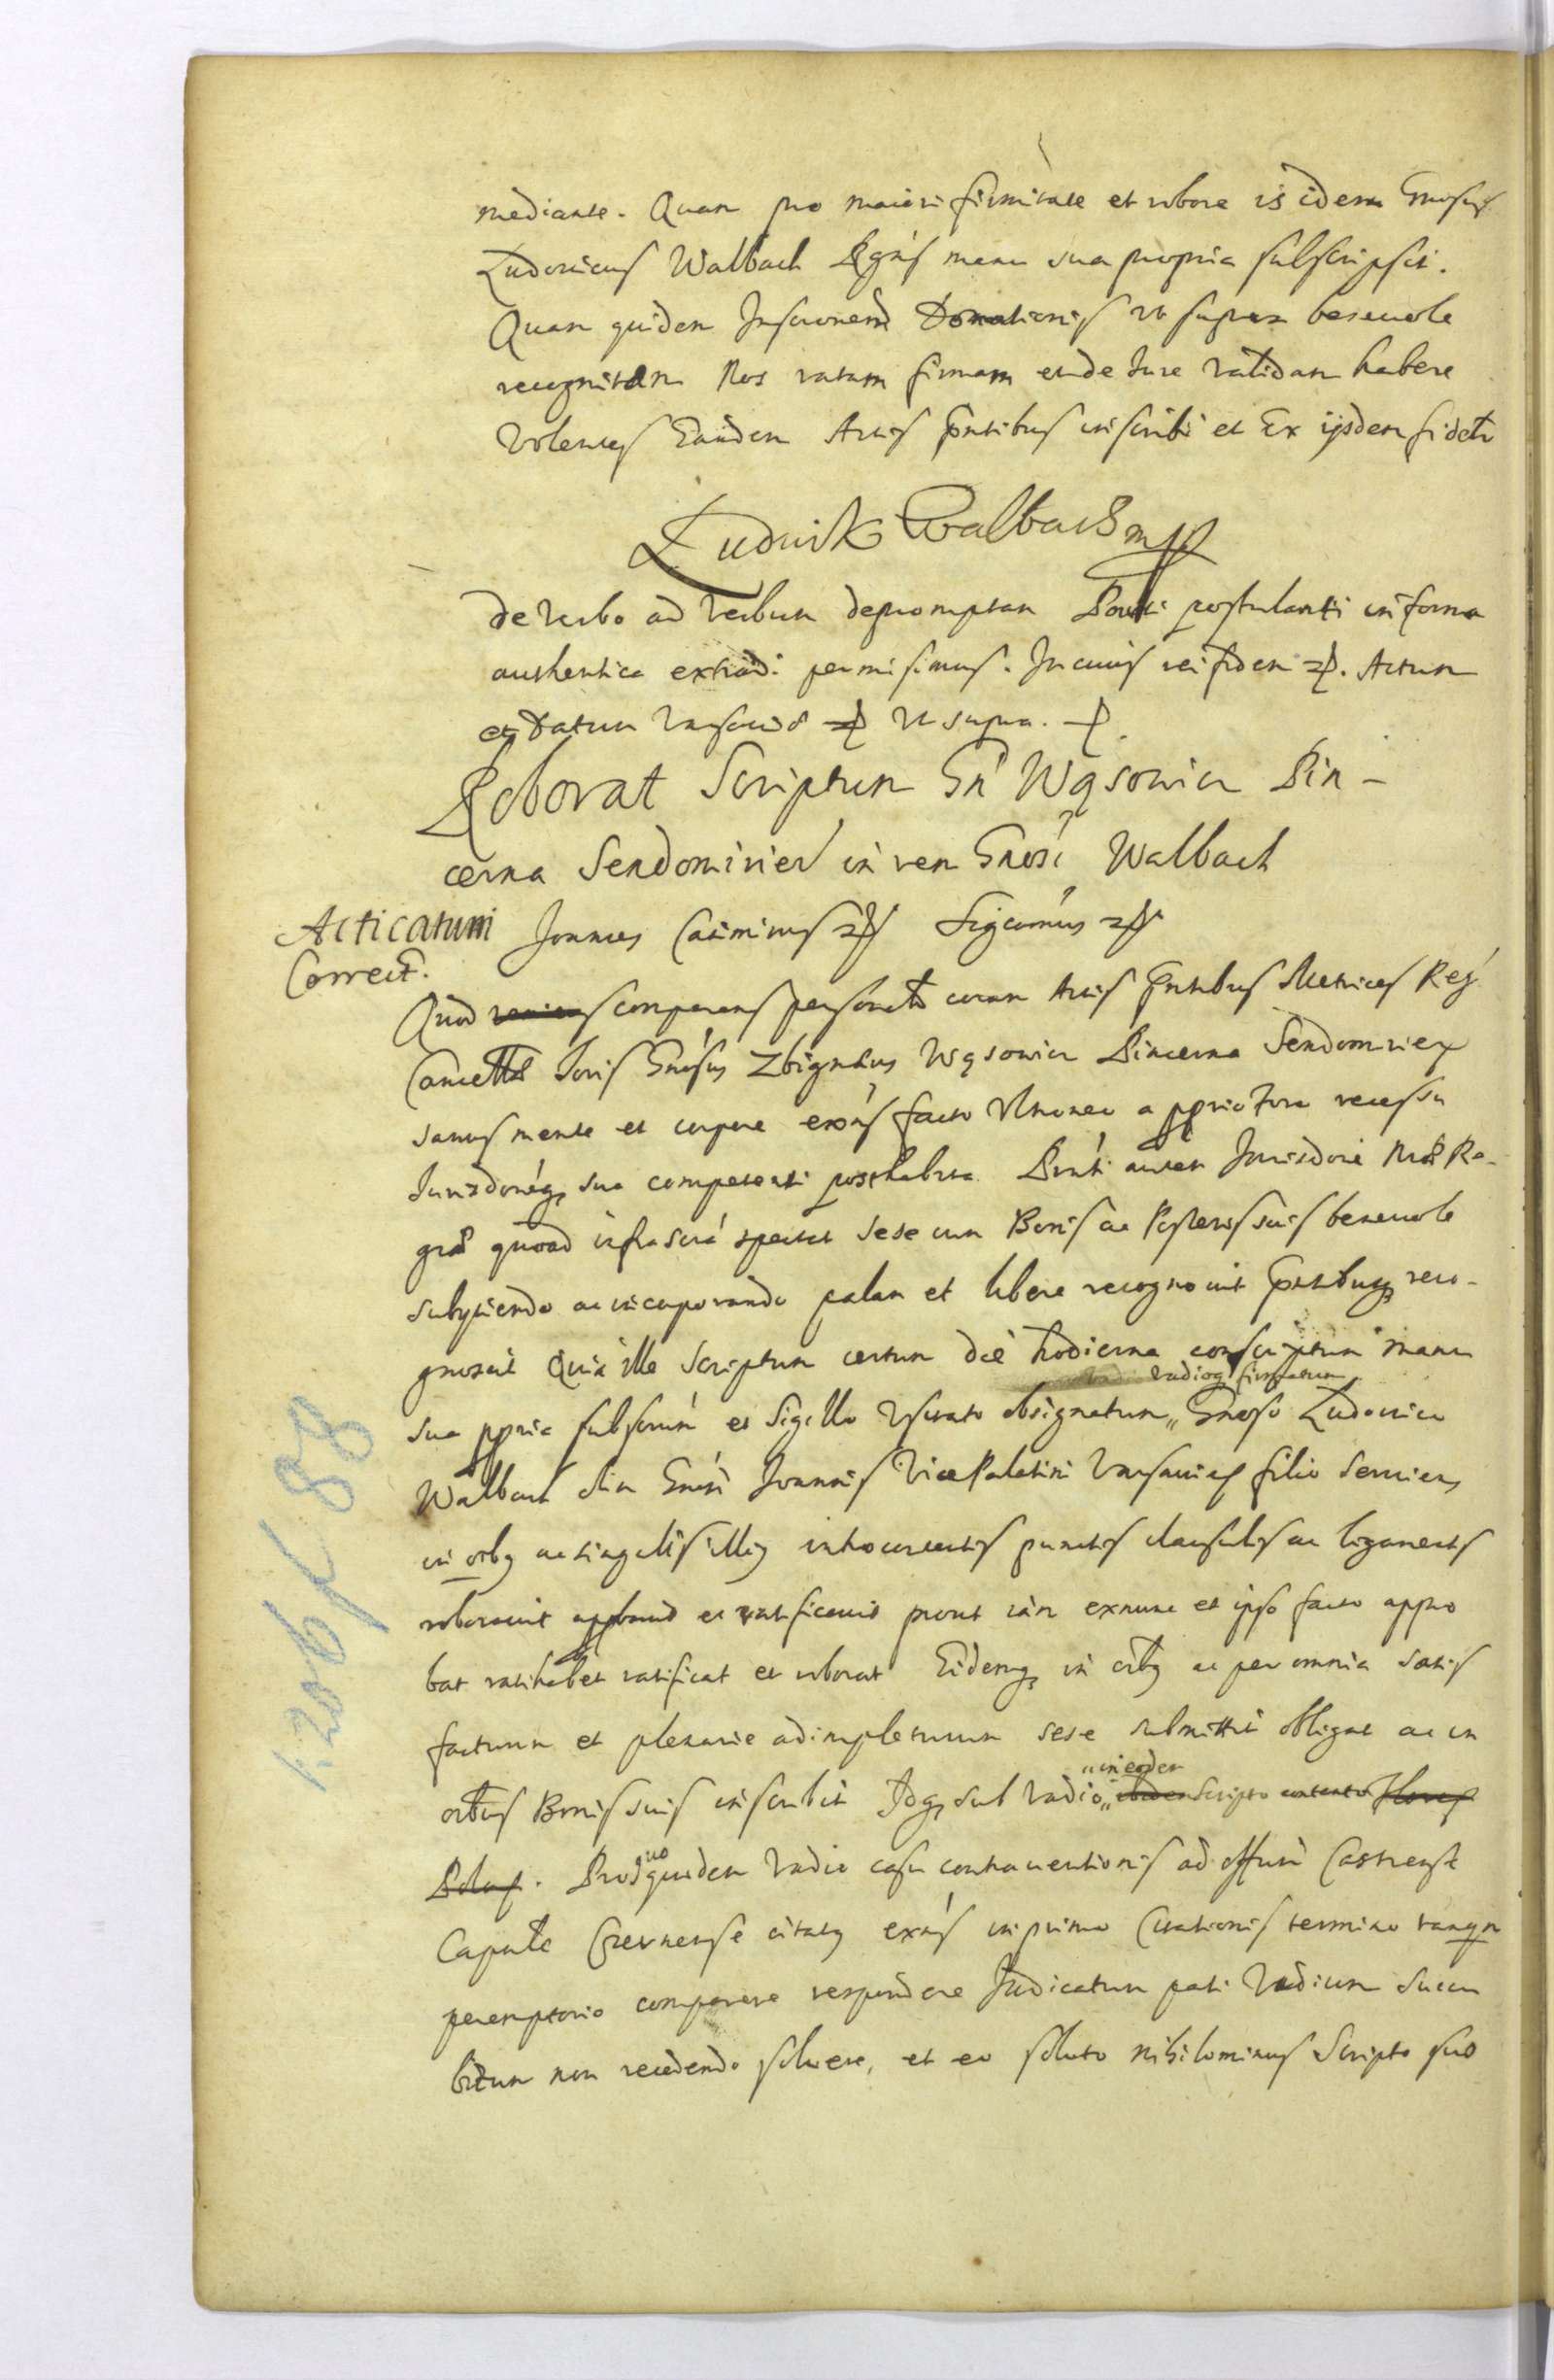 mediante. Quam pro maiori firmitate et robore is idem Gnosus
Ludovicus Walbach Rgnś manu sua propria subscripsit.
Quam quidem Inscrionem Donationis ut supra benevole
recognitam Nos ratam firmam et de Iure validam habere
Volentes Eandem Actis Pntibus inscribi et Ex ijsdem fidetr
Ludwik Walbach mp
de verbo ad verbum depromptam Parti postulanti in forma
authentica extradi permisimus. In cuius rei fidem ꝛp. Actum
et Datum Varsaviæ ꝛp ut supra. ꝛp.
Roborat Scriptum Gn Wąsowicz Pin-
cerna Sendomirien in rem Gnosi Walbach
Acticatum
Correct.
Joannes Casimirus ꝛp Significamus ꝛp
Quod veniens comparens personalr coram Actis Pntibus Metrices Reg
Cancellae Ioris Gnosus Zbigneus Wąsowicz Pincerna Sendomirien
sanus mente et corpore exnś facto Vltroneo a pprio Foro recessu
Jurisdonéq sua competenti posthabita Pnti autem Jurisdoni Nræ Re-
giæ quoad infrascrá spectat sese cum Bonis ac Posteris suis benevole
subijciendo ac incorporando palam et libere recognovit Pntibusq reco-
gnoscit Quia ille Scriptum certum die hodierna conscriptum manu
sua ppria subscrum et Sigillo Vsitato obsignatum „ vadioq firmatum Gnoso Ludovico
Walbach olim Gnosi Joannis Vice Palatini Varsavien filio serviens
in oibq ac singulis illiq introcontentis punctis clausulis ac ligamentis
roboravit approbavit et ratificavit prout iam exnunc et ipso facto appro
bat ratihabet ratificat et roborat Eidemq in oibq ac per omnia satis
facturum et plenarie adimpleturum sese submittit obligat ac in
oibus Bonis suis inscribit Idq sub vadio „ in eodem ibidem Scripto contento florens
Polon. Pro quo quidem Vadio casu contraventionis ad offum Castrense
Capnle Czernense citatq exnś in primo Citationis termino tanqm
peremptorio comparere respondere Judicatum pati Vadium succu
bitum non recedendo solvere, et eo soluto nihilominus Scripto suo
1.206 f 88